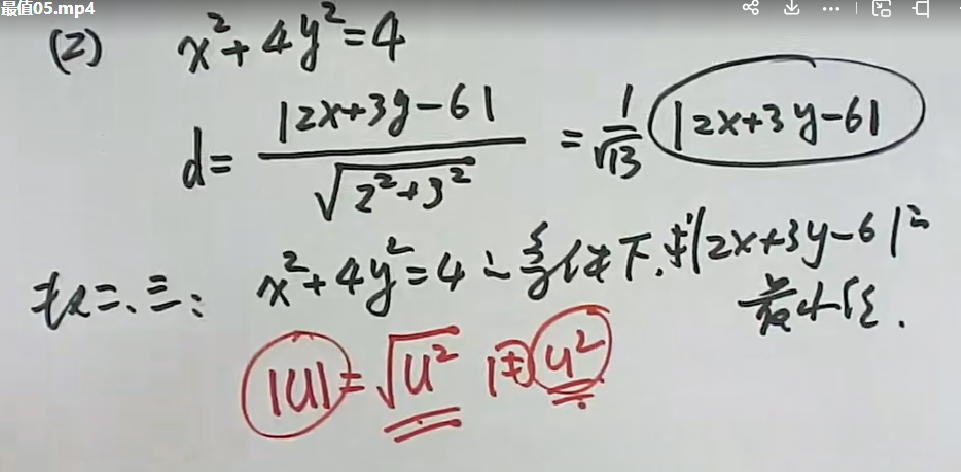 最值05.mp4
(2) x²+4y²=4
d= |2x+3y-6| / √(2²+3²) = 1/√13 |2x+3y-6|
法二、三: x²+4y²=4 条件下,求|2x+3y-6|²
最小值.
|u|=√u² 用u²